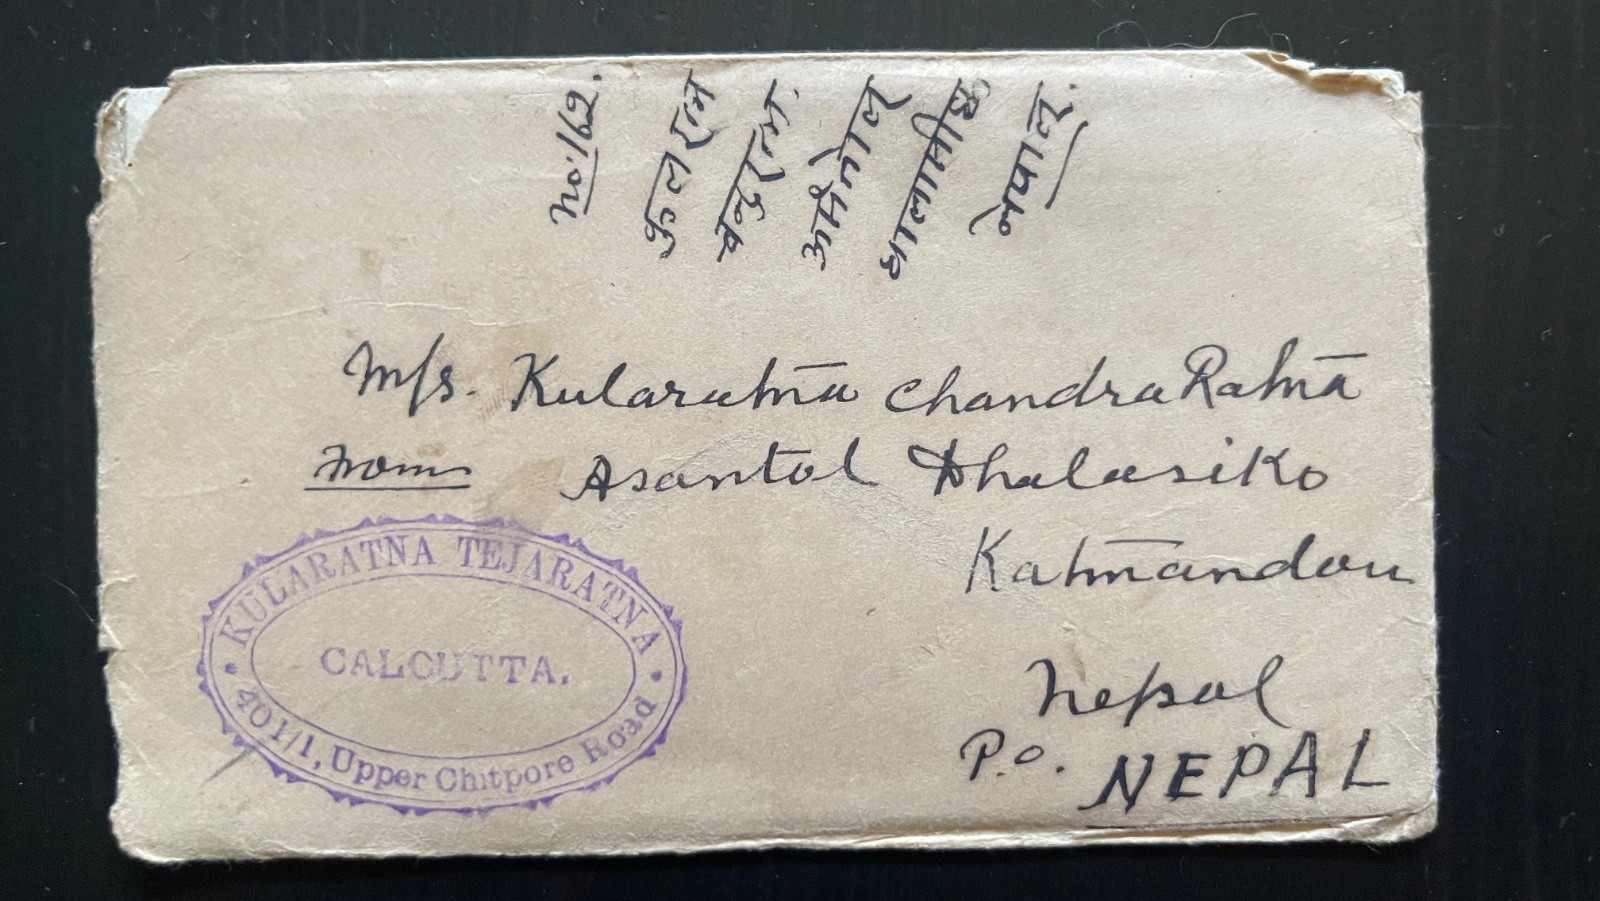 No. 162.
कुलरत्न
चन्द्ररत्न.
असंतोल
धालासीकु
नेपाल.
M/s. Kularatna Chandra Ratna
From Asantol Dhalasiko
Katmandou
Nepal
P.O. NEPAL
KULARATNA TEJARATNA
CALCUTTA.
401/1, Upper Chitpore Road